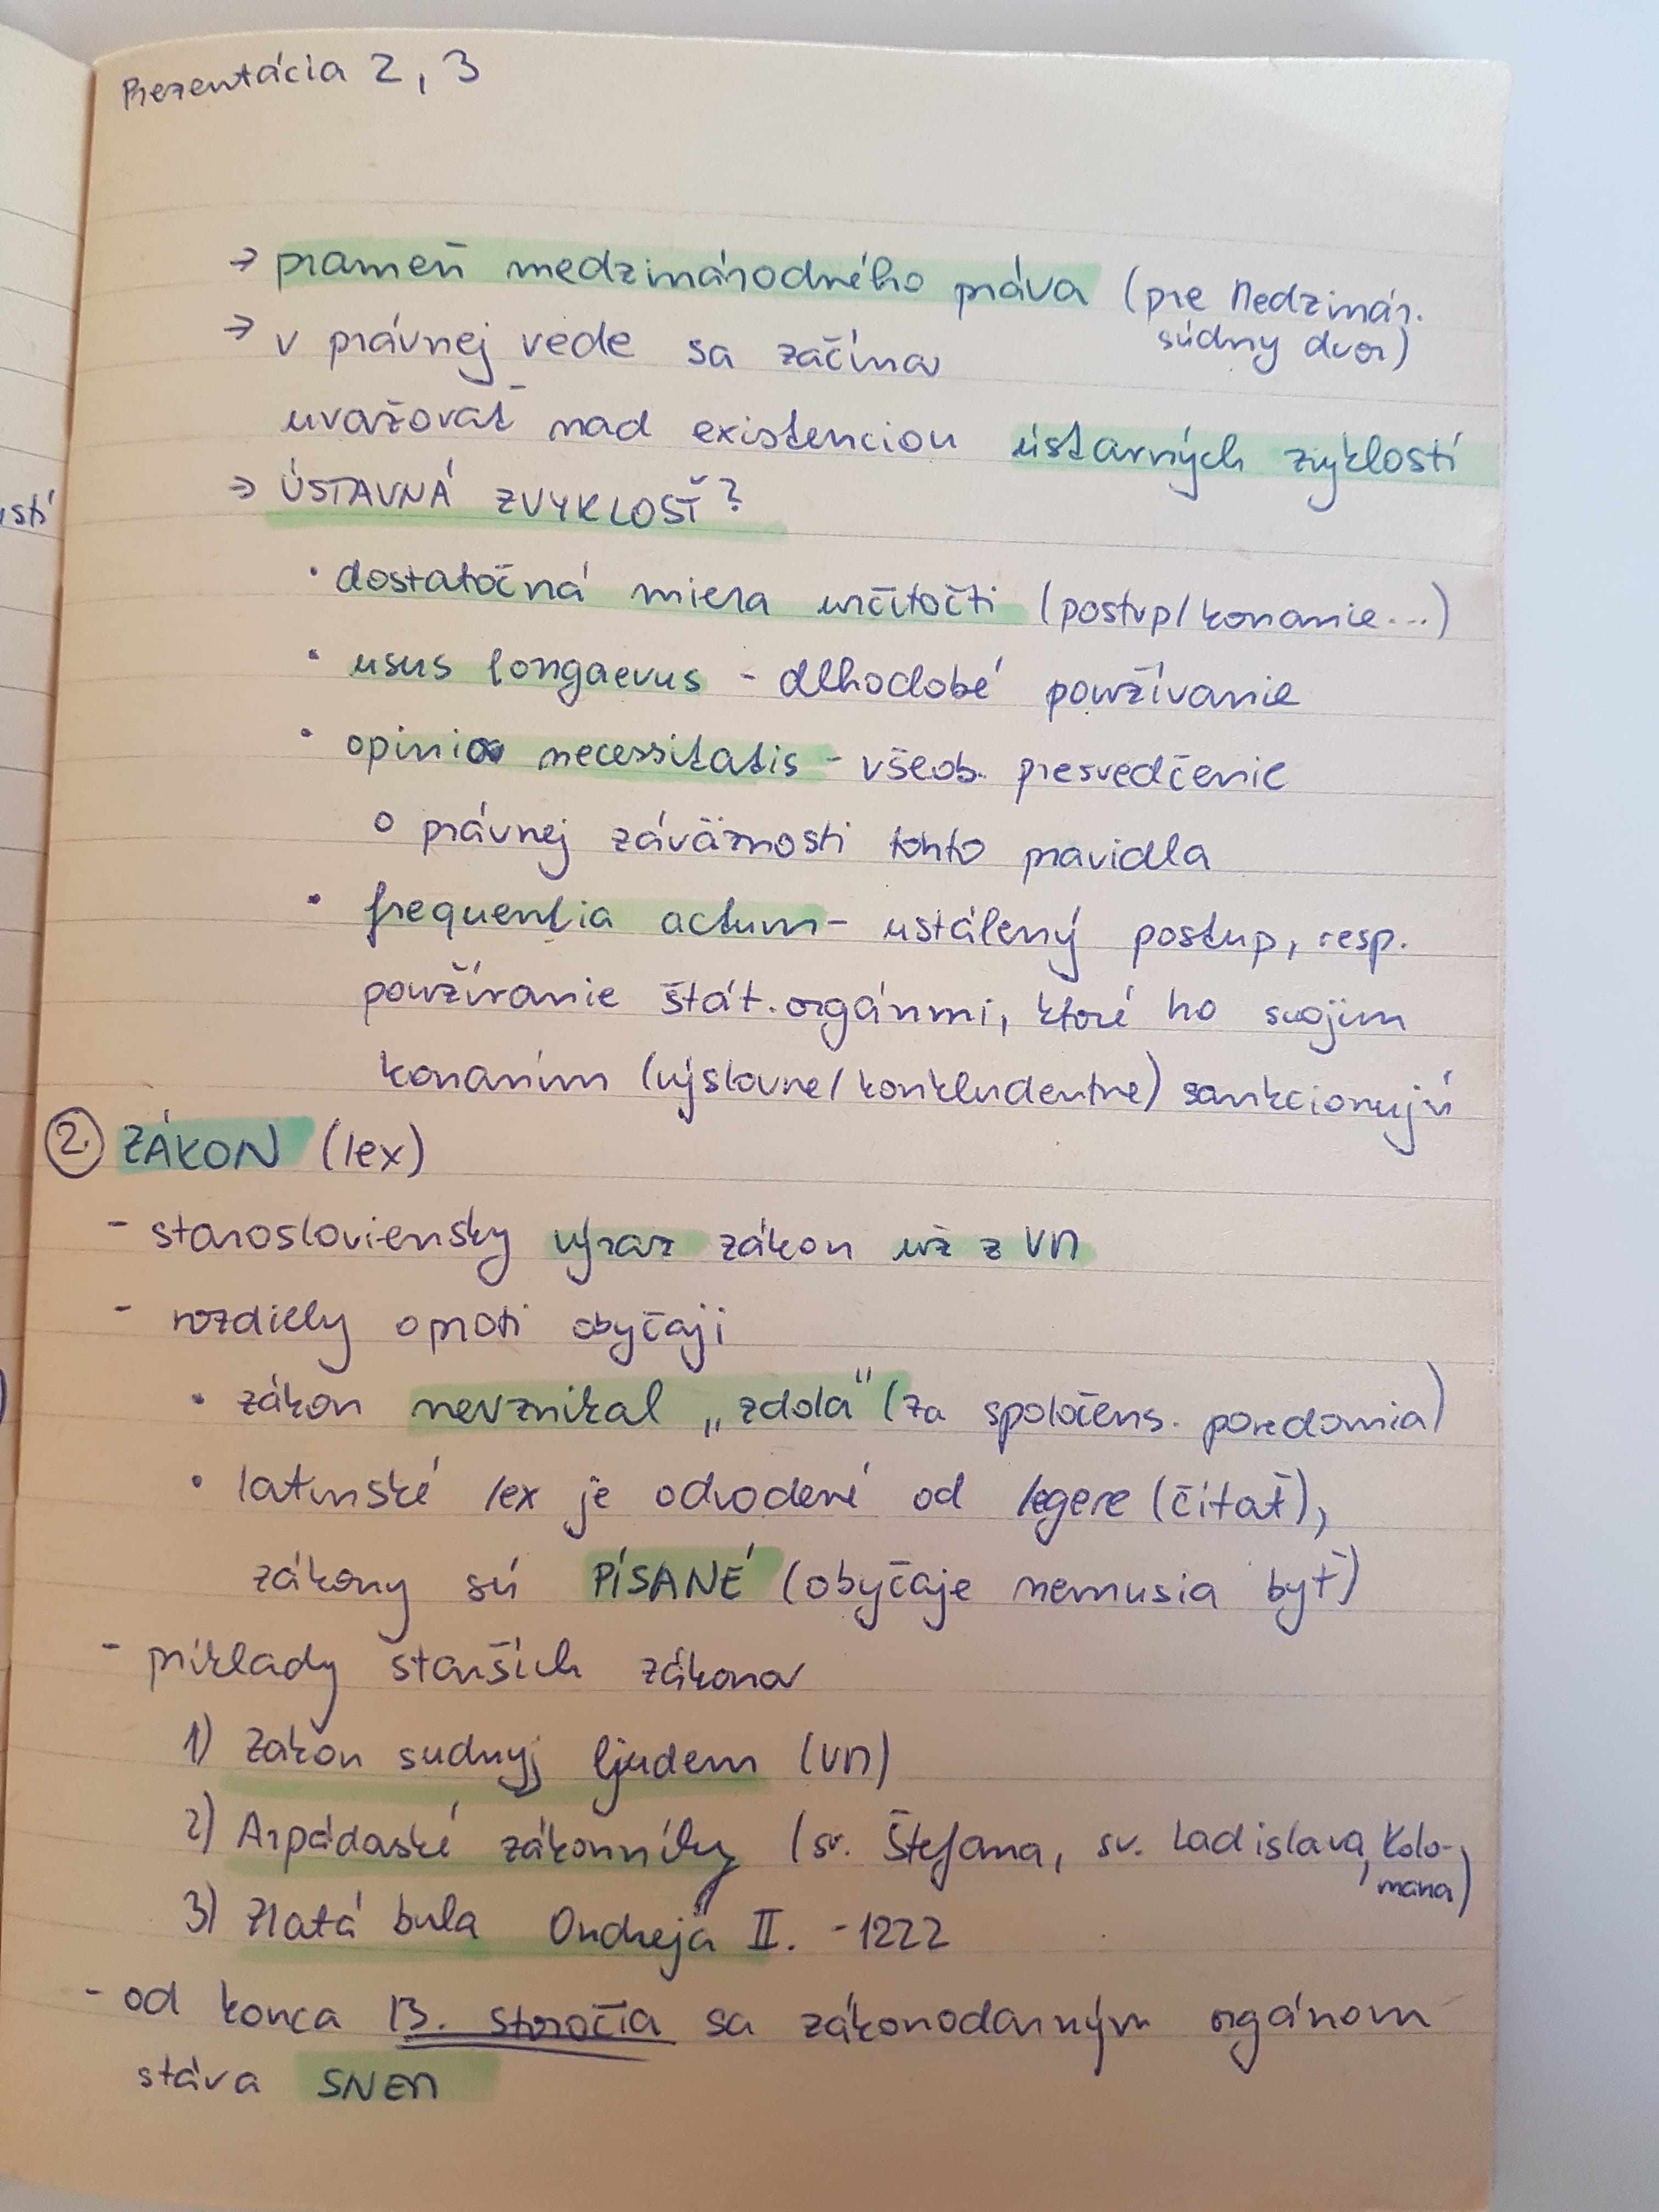 Prezentácia 2, 3
→ prameň medzinárodného práva (pre Medzinár.
súdny dvor)
→ v právnej vede sa začína
uvažovať nad existenciou ústavných zvyklostí
→ ÚSTAVNÁ ZVYKLOSŤ?
• dostatočná miera určitočti (postup/konanie...)
• usus longaevus - dlhodobé používanie
• opinio necessitatis - všeob. presvedčenie
o právnej záväznosti tohto pravidla
• frequentia actum - ustálený postup, resp.
používanie štát. orgánmi, ktoré ho svojim
konaním (výslovne/konkludentne) sankcionujú
2. ZÁKON (lex)
- staroslovienský výraz zákon už z VM
- rozdiely oproti obyčaji
• zákon nevznikal „zdola" (za spoločens. povedomia)
• latinské lex je odvodené od legere (čítať),
zákony sú PÍSANÉ (obyčaje nemusia byť)
- príklady starších zákonov
1) Zakon sudnyj ljudem (VM)
2) Arpádaské zákonníky (sv. Štefana, sv. Ladislava, Kolo-
mana)
3) Zlatá bula Ondreja II. - 1222
- od konca 13. storočia sa zákonodarným orgánom
stáva SNEM